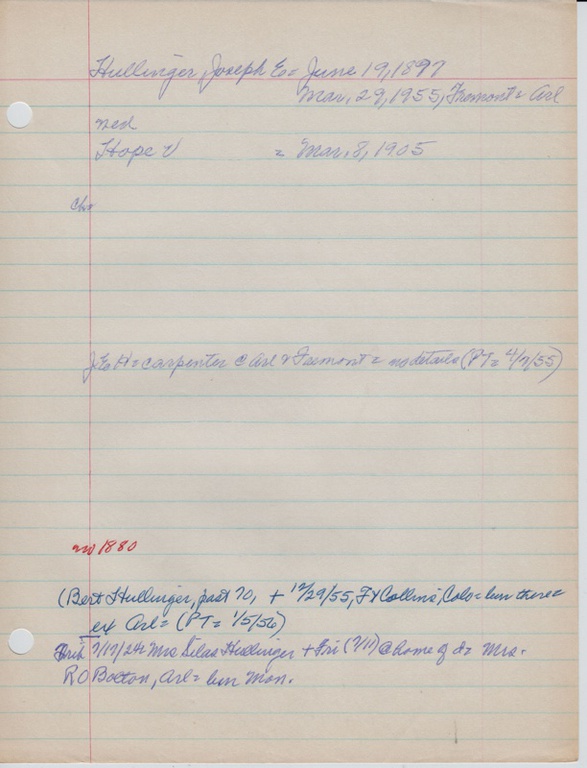 Hullinger, Joseph E = June 19, 1897
Mar, 29, 1955, Fremont = Arl
med
Hope V = Mar, 8, 1905
Chn
J.E. H = carpenter @ Arl & Fremont = no details (PT = 4/7/55)
no 1880
(Bert Hullinger, past 70, + 12/29/55, Ft Collins, Colo = bur there =
ex Arl = (PT = 1/5/56)
7/17/24 Mrs Silas Hullinger + Fri (7/11) @ home of d = Mrs.
RO Bolton, Arl = bur Mon.